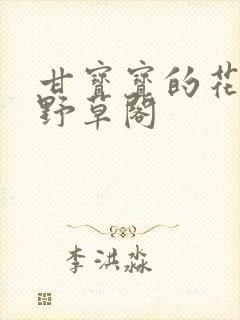 甘寶寶的花
野草閣
李洪淼